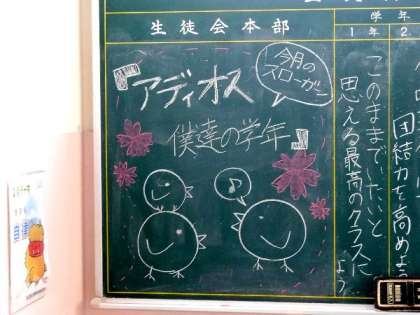 生徒会本部
学年
1年
2
今月の
スローガン
『アディオス
僕達の学年』
このままでいたいと
思える最高のクラスに
しよう
団結力を高めよう